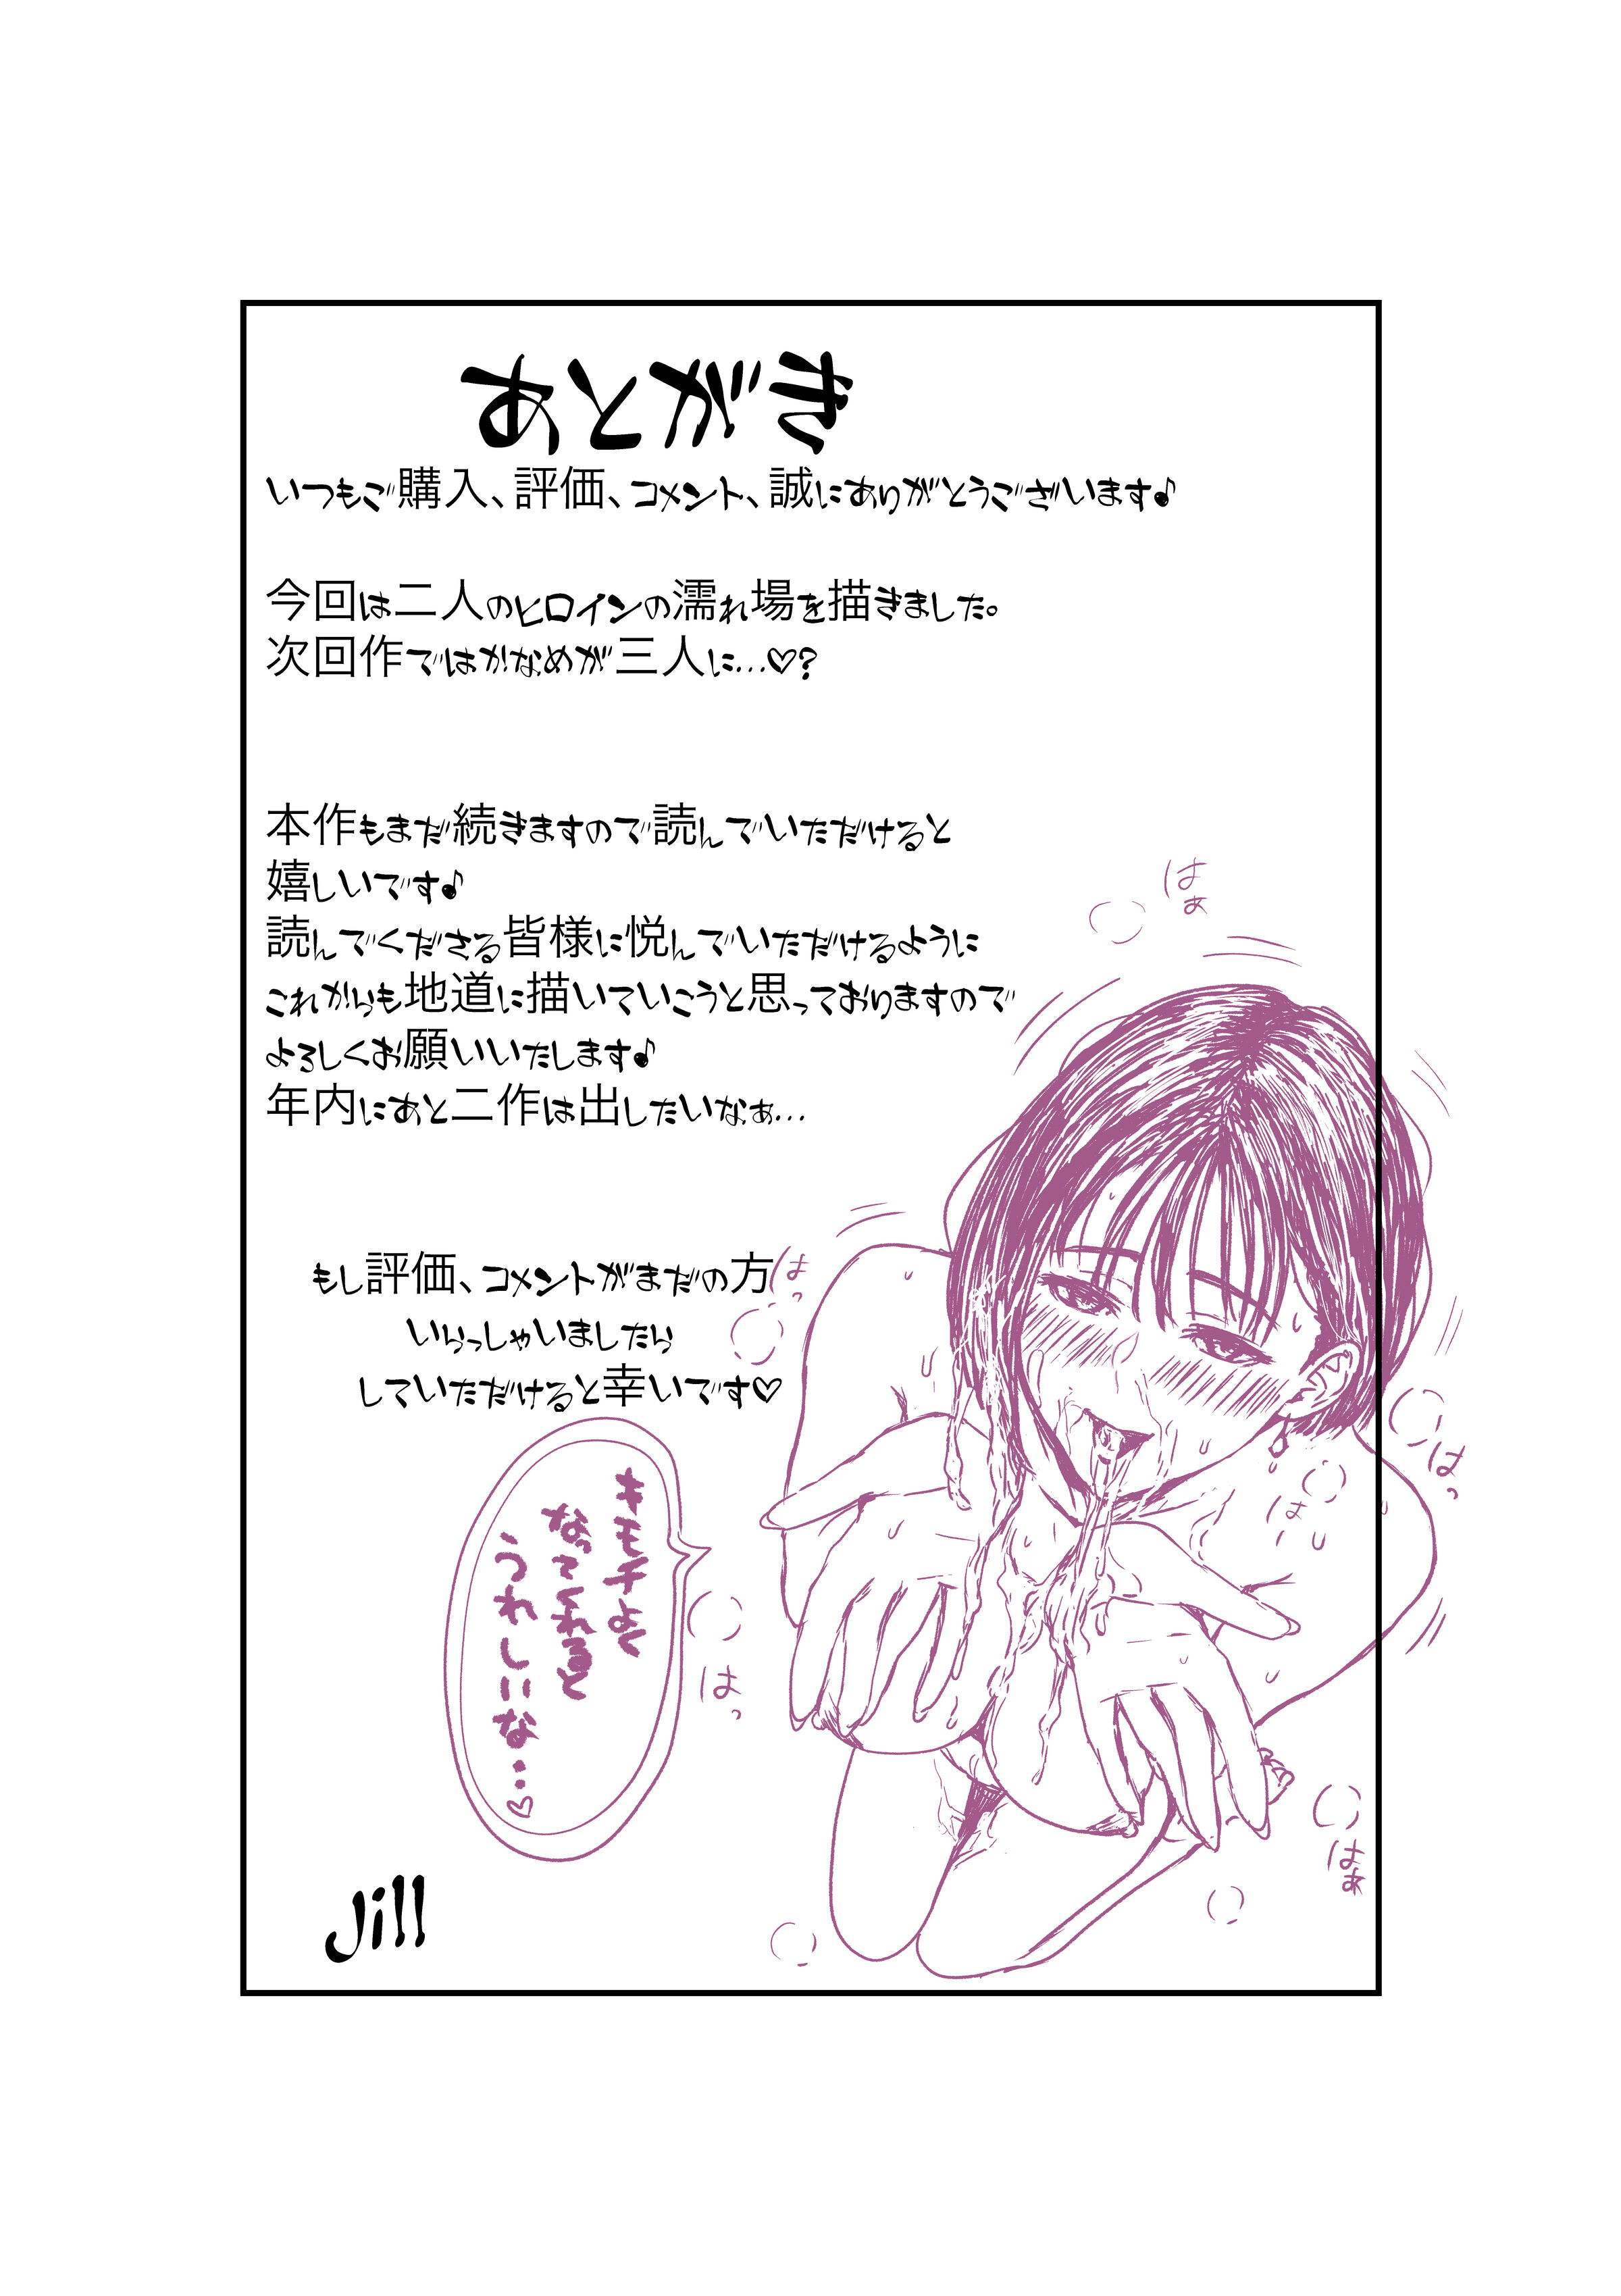 あとがき
いつもご購入、評価、コメント、誠にありがとうございます♪
今回は二人のヒロインの濡れ場を描きました。
次回作ではかなめが三人に…♡?
本作もまだ続きますので読んでいただけると
嬉しいです♪
読んでくださる皆様に悦んでいただけるように
これからも地道に描いていこうと思っておりますので
よろしくお願いいたします♪
年内にあと二作は出したいなぁ…
もし評価、コメントがまだの方
いらっしゃいましたら
していただけると幸いです♡
はぁ
はっ
はっ
はっ
キモチよく
なってくれると
うれしいな…♡
はっ
はぁ
Jill